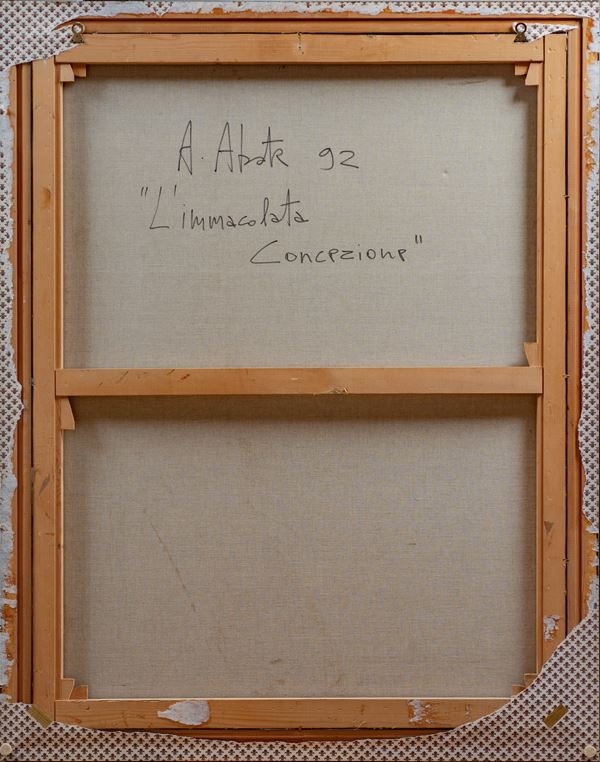 A. Abate 92
"L'immacolata
Concezione"